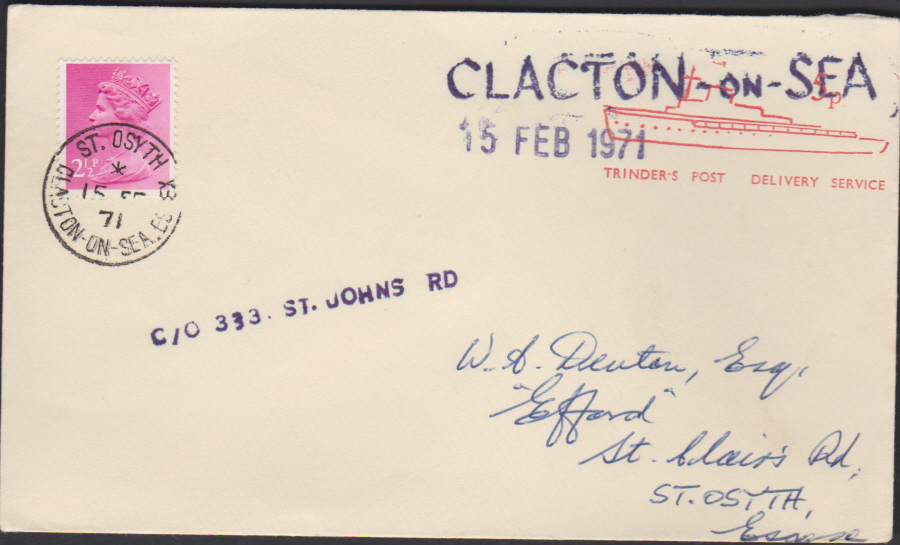 CLACTON-ON-SEA
5p
15 FEB 1971
TRINDER'S POST DELIVERY SERVICE
2½P
ST. OSYTH
*
15
71
CLACTON-ON-SEA. ESSEX
C/O 333. ST. JOHNS RD
W. A. Denton, Esq.
"Efford"
St. Clair's Rd,
ST. OSYTH,
Essex